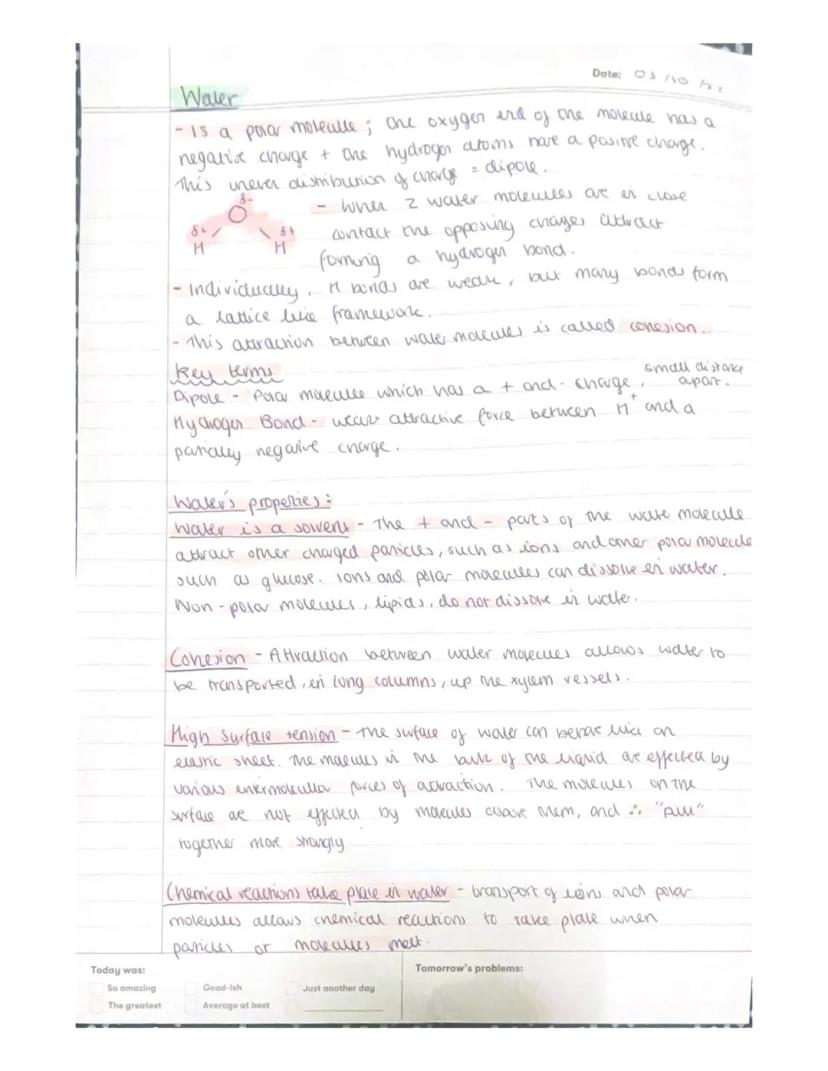 Date: 03/10/22
Water
- Is a polar molecule; the oxygen end of the molecule has a
negative charge + the hydrogen atoms have a positive charge.
This uneven distribution of charge = dipole.
δ-
O
δ+ δ+
H H
- When 2 water molecules are in close
contact the opposing charges attract
forming a hydrogen bond.
- Individually, H bonds are weak, but many bonds form
a lattice like framework.
- This attraction between water molecules is called cohesion.
Key terms
Dipole - Polar molecule which has a + and - charge, small distance
apart.
Hydrogen Bond - weak attractive force between H+ and a
partially negative charge.
Water's properties:
Water is a solvent - The + and - parts of the water molecule
attract other charged particles, such as ions and other polar molecule
such as glucose. Ions and polar molecules can dissolve in water.
Non-polar molecules, lipids, do not dissolve in water.
Cohesion - Attraction between water molecules allows water to
be transported, in long columns, up the xylem vessels.
High surface tension - The surface of water can behave like an
elastic sheet. The molecules in the bulk of the liquid are effected by
various intermolecular forces of attraction. The molecules on the
surface are not effected by molecules above them, and ∴ "pull"
together more strongly
Chemical reactions take place in water - transport of ions and polar
molecules allows chemical reactions to take place when
particles or molecules meet.
Today was:
So amazing Good-ish Just another day
The greatest Average at best
Tomorrow's problems: